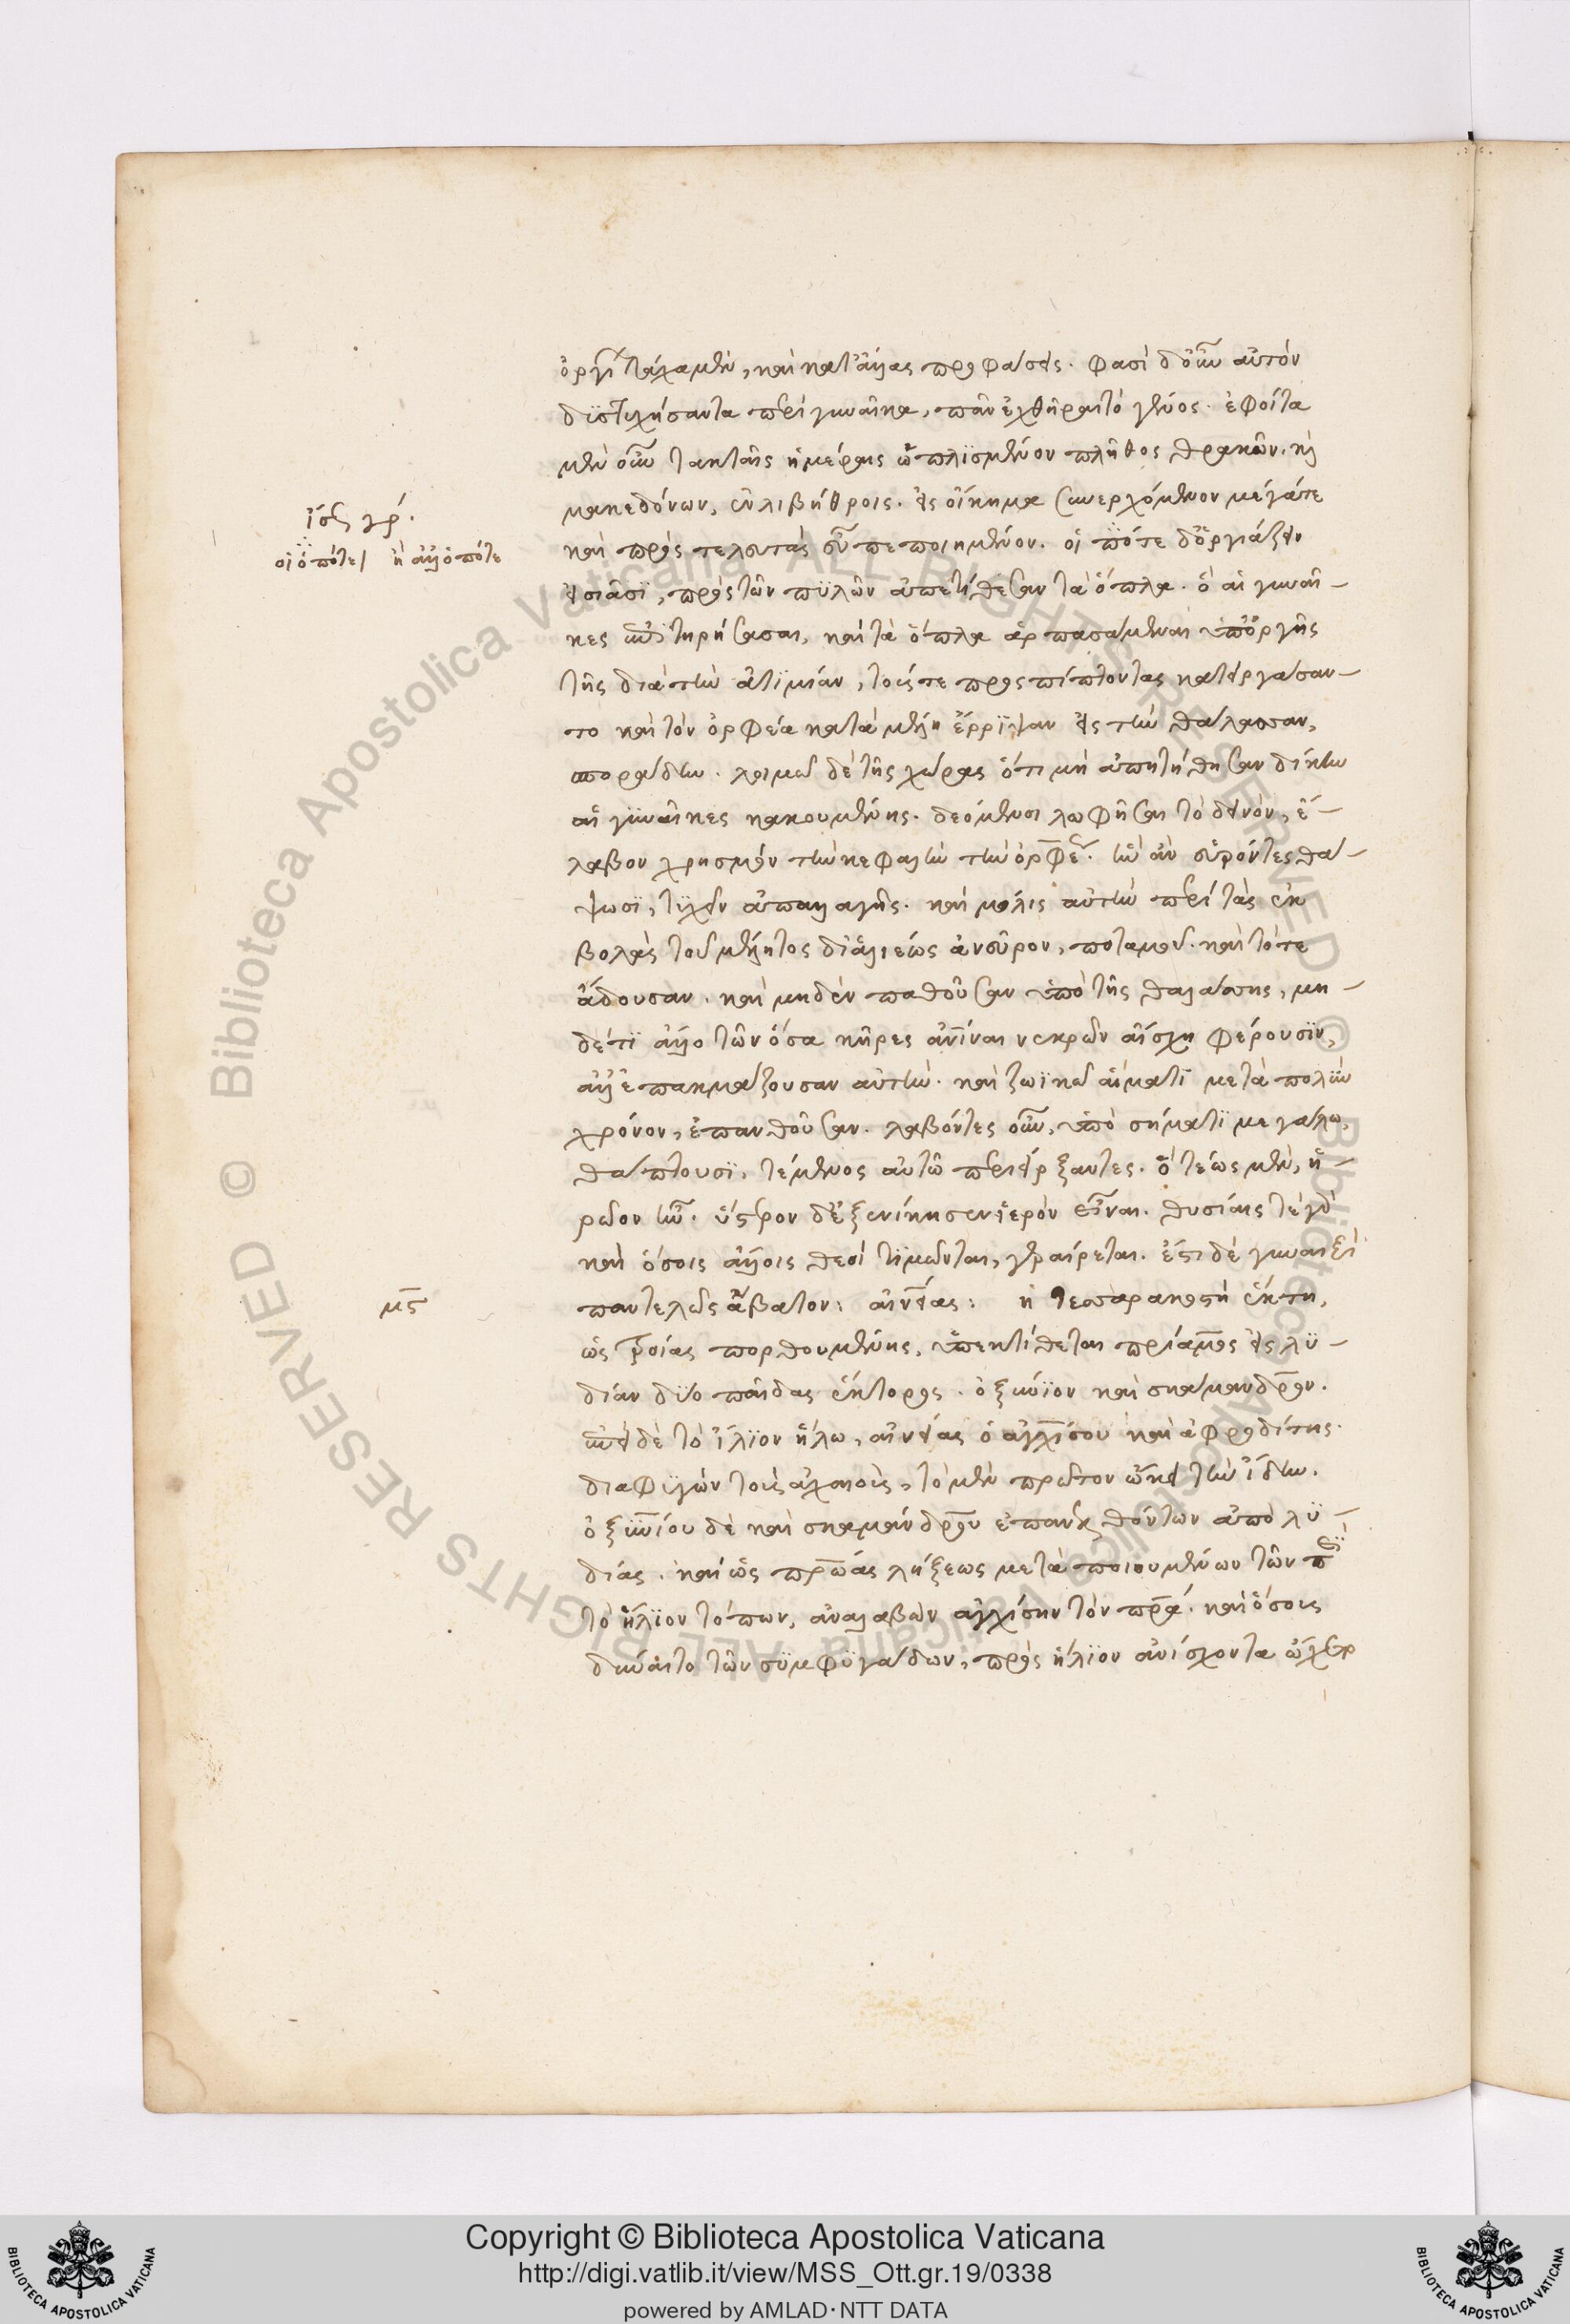 ὀργί τάχα μὲν, καὶ κατ' ἄλλας προφάσεις. φασὶ δ' οὖν αὐτὸν
δϋστυχήσαντα περὶ γυναῖκα, πᾶν ἐχθῆραι τὸ γένος. ἐφοίτα
μὲν οὖν τακταῖς ἡμέραις ὡπλϊσμένον πλῆθος θρακῶν. καὶ
μακεδόνων, ἐν λιβήθροις. εἰς οἴκημα συνερχόμενον μέγά τε
καὶ πρὸς τελετὰς εὖ πεποιημένον. οἱ πότε δ' ὀργιάζειν
εἰσιᾶσϊ, πρὸς τῶν πϋλῶν ἀπετίθεσαν τὰ ὅπλα. ὃ αἱ γυναῖ-
κες ἐπιτηρήσασαι, καὶ τὰ ὅπλα ἁρπασάμεναι ὑπ' ὀργῆς
τῆς διὰ τὴν ἀτϊμίαν, τούς τε προσπίπτοντας κατειργάσαν-
το καὶ τὸν ὀρφέα κατὰ μέλη ἔρρϊψαν εἰς τὴν θάλασσαν,
σποράδην. λοιμοῦ δὲ τῆς χώρας ὅτι μὴ ἀπητήθησαν δίκην
αἱ γϋναῖκες κακουμένης. δεόμενοι λωφῆσαι τὸ δεινὸν, ἔ-
λαβον χρησμὸν τὴν κεφαλὴν τὴν ὀρφέως. ἢν ἀνευρόντες θά-
ψωσϊ, τϋχεῖν ἀπαλλαγῆς. καὶ μόλις αὐτὴν περὶ τὰς ἐκ
βολὰς τοῦ μέλητος δι' ἁλιέως ἀνεῦρον, ποταμοῦ. καὶ τότε
ᾄδουσαν. καὶ μηδὲν παθοῦσαν ὑπὸ τῆς θαλάσσης, μη-
δέ τϊ ἄλλο τῶν ὅσα κῆρες ἀνίναι νεκρῶν αἴσχη φέρουσϊν,
ἀλλ' ἐπακμάζουσαν αὐτὴν. καὶ ζωϊκῶ αἵματϊ μετὰ πολὺν
χρόνον, ἐπανθοῦσαν. λαβόντες οὖν, ὑπὸ σήματϊ μεγάλω,
θάπτουσϊ, τέμενος αὐτῶ περιείρξαντες. ὃ τέως μὲν, ἡ-
ρῶον ἦν. ὕστερον δ' ἐξενίκησεν ἱερὸν εἶναι. θυσίαις τε γὰρ
καὶ ὅσοις ἄλλοις θεοὶ τϊμῶνται, γεραίρεται. ἔστι δὲ γυναιξὶ
παντελῶς ἄβατον: αἰνείας: ἡ τεσσαρακοστὴ ἕκτη,
ὡς τροίας πορθουμένης, ὑπεκτίθεται πρίαμος εἰς λϋ-
δίαν δϋο παῖδας ἕκτορος. ὀξυνϊον καὶ σκάμανδρον.
ἐπεὶ δὲ τὸ ἴλϊον ἥλω, αἰνείας ὁ ἀγχίσου καὶ ἀφροδίτης.
διαφϋγὼν τοὺς ἀχαιοὺς, τὸ μὲν πρῶτον ᾤκει τὴν ἴδην.
ὀξυνίου δὲ καὶ σκαμάνδρου ἐπανελθόντων ἀπὸ λϋ-
δίας. καὶ ὡς πρώας λήξεως μεταποιουμένων τῶν περὶ
τὸ ἥλϊον τόπων, ἀναλαβὼν ἀγχίσην τὸν πρα. καὶ ὅσους
δύναιτο τῶν σϋμφϋγάδων, πρὸς ἥλϊον ἀνίσχοντα ἐχώρ
ἴσως γρ.
οἳ ὁπότε/ ἢ ἀλλ' ὁπότε
μς
Copyright © Biblioteca Apostolica Vaticana
http://digi.vatlib.it/view/MSS_Ott.gr.19/0338
powered by AMLAD·NTT DATA
BIBLIOTECA APOSTOLICA VATICANA
BIBLIOTECA APOSTOLICA VATICANA
© Biblioteca Apostolica Vaticana ALL RIGHTS RESERVED
© Biblioteca Apostolica Vaticana ALL RIGHTS RESERVED